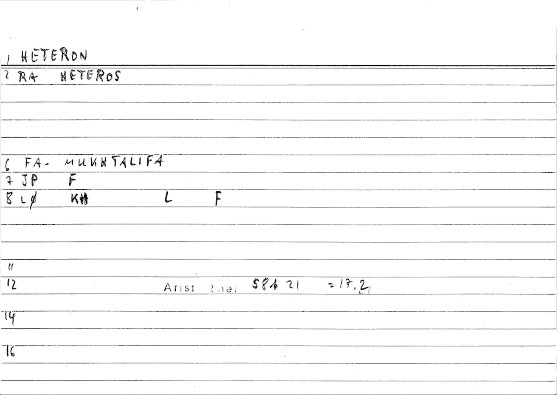 1 HETERON
2 RA HETEROS
6 FA- MUKHTALIFA
7 JP F
8 LØ KH L F
11
12 Arist 586 21 =17.2
14
16